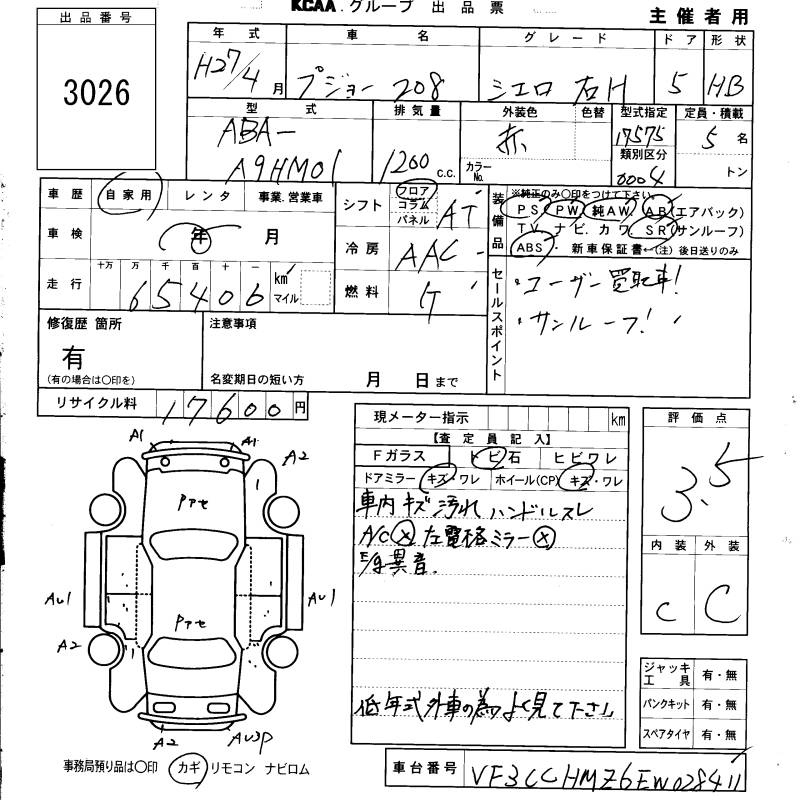 KCAA グループ 出品票
主催者用
出品番号
3026
年式 車名 グレード ドア 形状
H27/4月 プジョー 208 シエロ 右H 5 HB
型式 排気量 外装色 色替 型式指定 定員・積載
ABA- 赤 17575 5名
A9HM01 1200c.c. カラーNo. 類別区分 トン
0004
車歴 自家用 レンタ 事業.営業車
車検 年 月
走行 十万 万 千 百 十 一
65406 km マイル
シフト フロア コラム パネル AT
冷房 AAC
燃料
装備品 ※純正のみ○印をつけて下さい。
PS. PW 純AW. AB(エアバック)
TV. ナビ. カワ. SR(サンルーフ)
ABS 新車保証書←(注)後日送りのみ
セールスポイント
・ユーザー買取車!
・サンルーフ!
修復歴 箇所
有
(有の場合は○印を)
注意事項
名変期日の短い方 月 日まで
リサイクル料 17600円
現メーター指示 km
【査定員記入】
Fガラス トビ石 ヒビワレ
ドアミラー キズ・ワレ ホイール(CP) キズ・ワレ
車内キズ汚れ ハンドルスレ
A/C ⓧ 左電格ミラー ⓧ
E/g異音.
低年式外車の為よく見て下さい
評価点
3.5
内装 外装
C C
A1 A1
A2
Pアセ
AU1 AU1
Pアセ
A2
A2 AU3P
ジャッキ工具 有・無
パンクキット 有・無
スペアタイヤ 有・無
事務局預り品は○印 カギ リモコン ナビロム
車台番号 VF3CCHMZ6EW028411